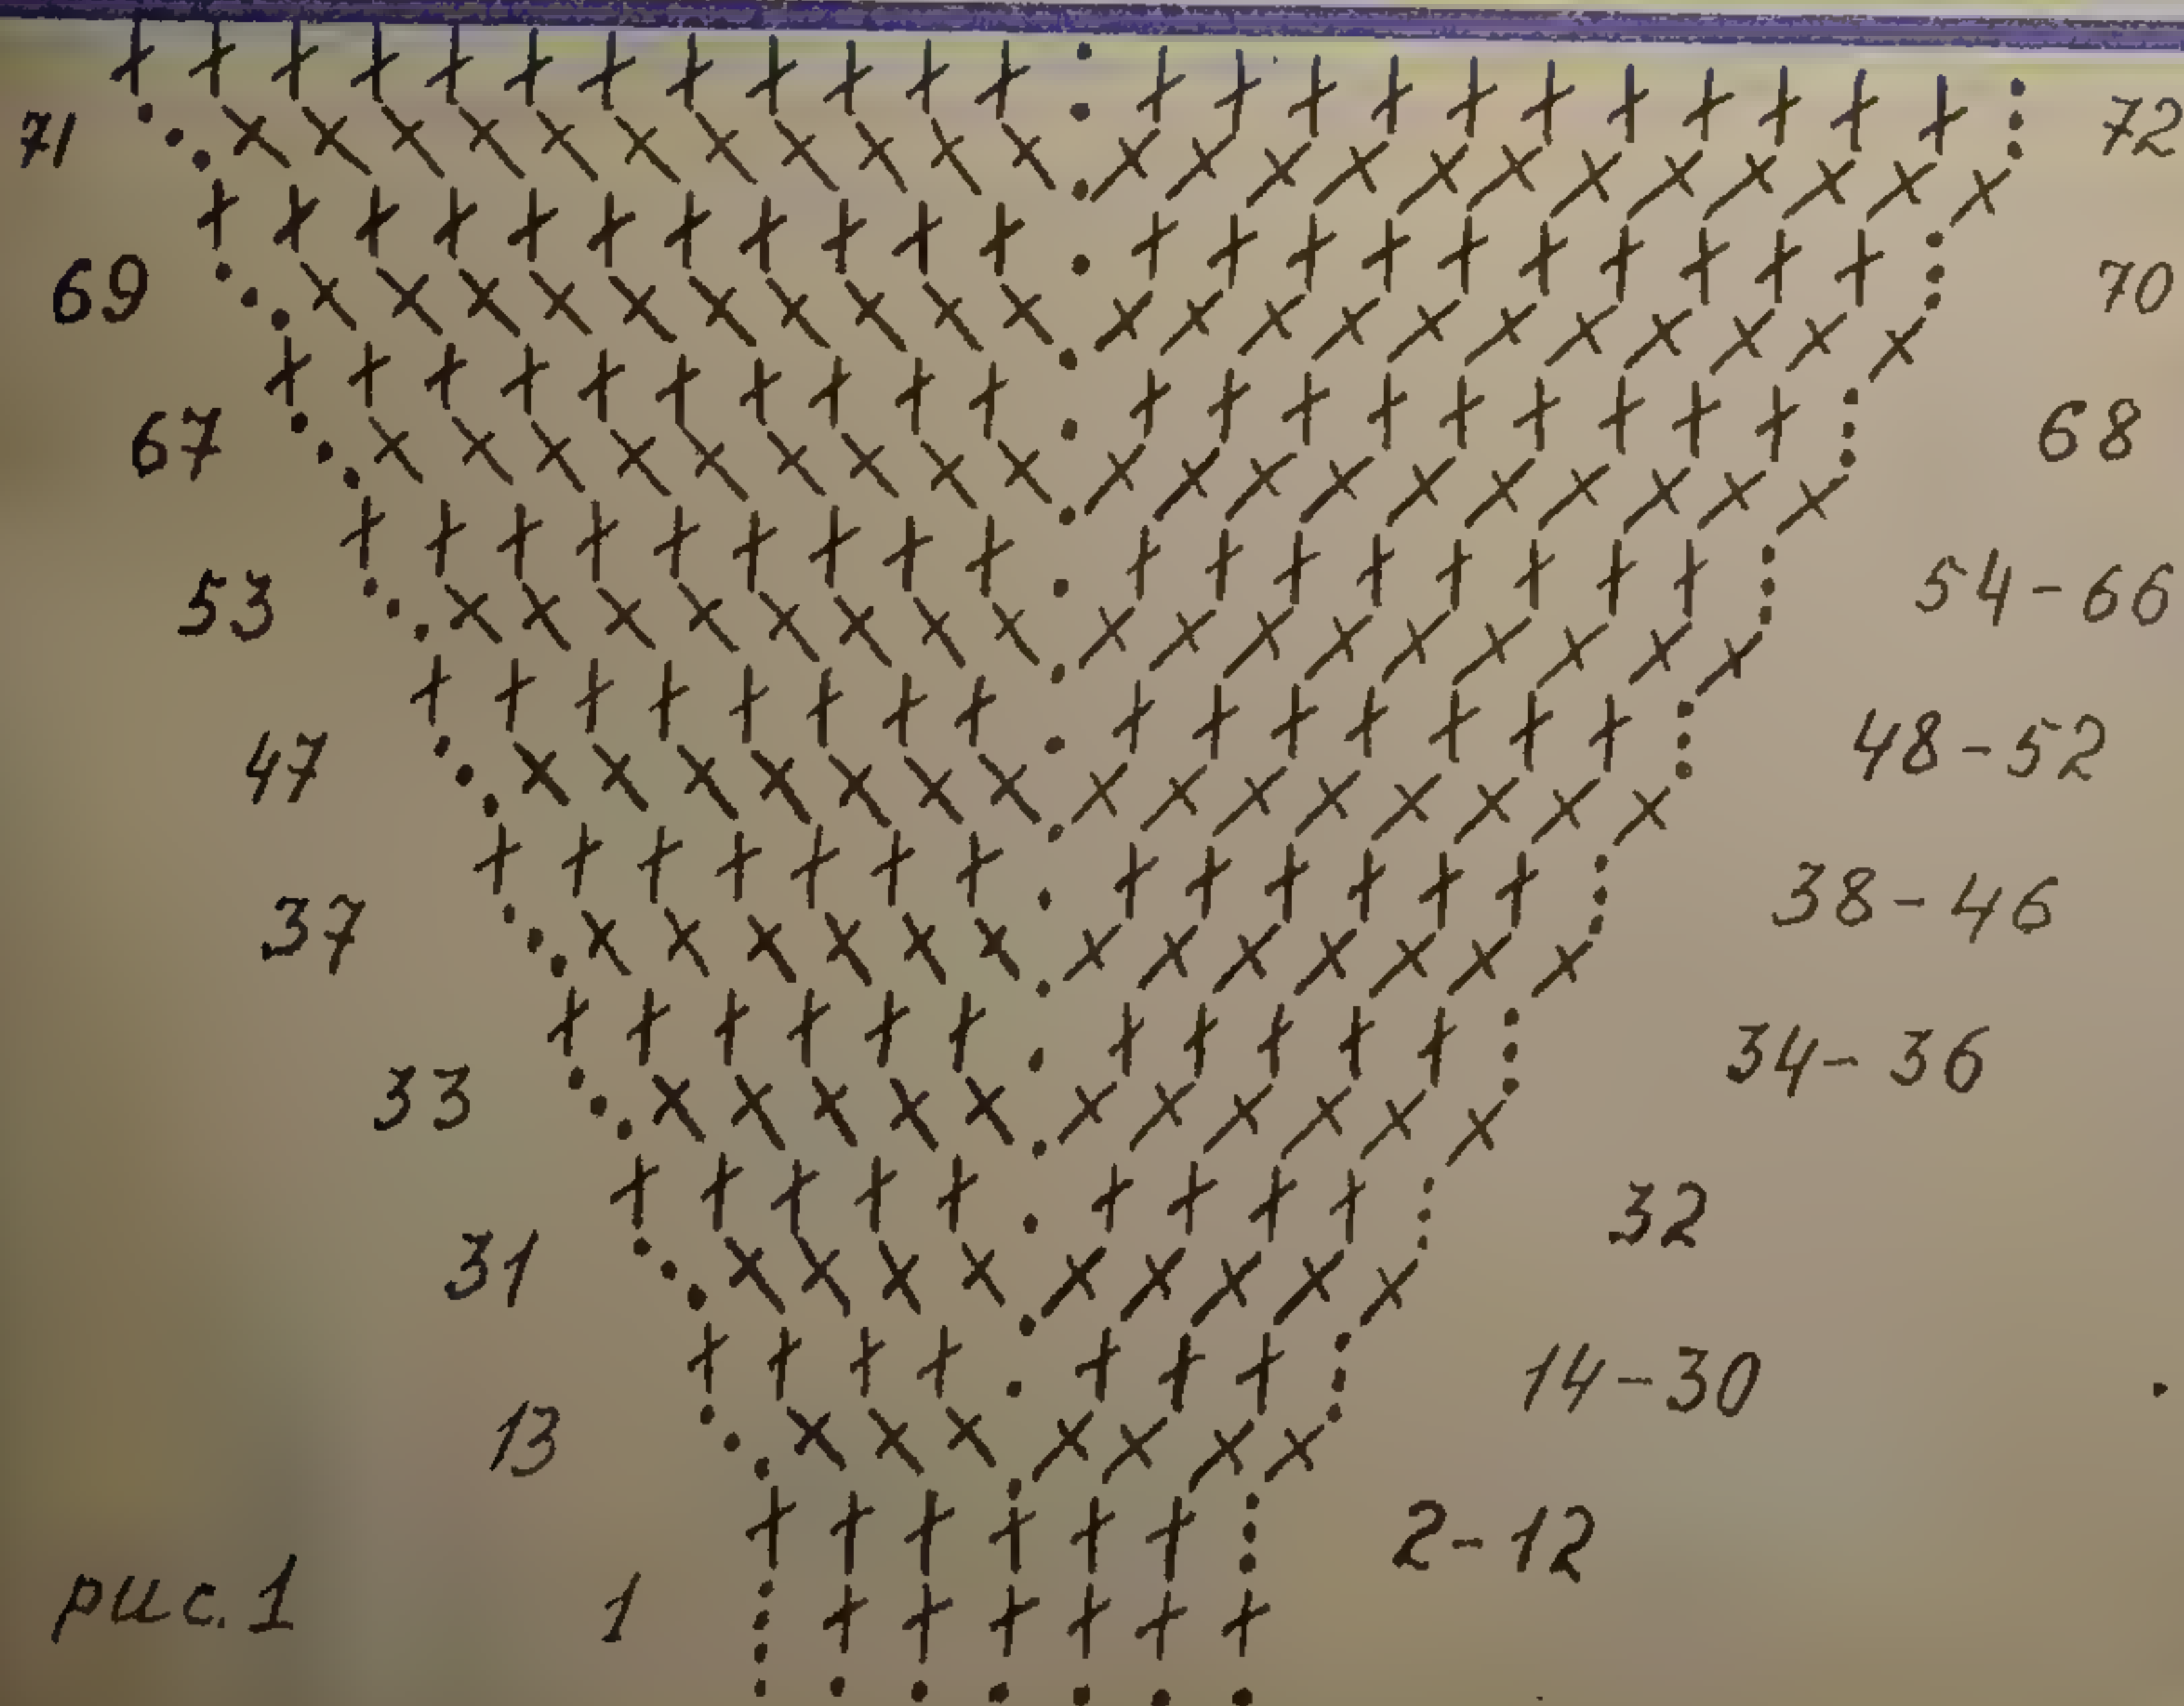 71 72
69 70
67 68
53 54-66
47 48-52
37 38-46
33 34-36
31 32
13 14-30
2-12
рис. 1 1